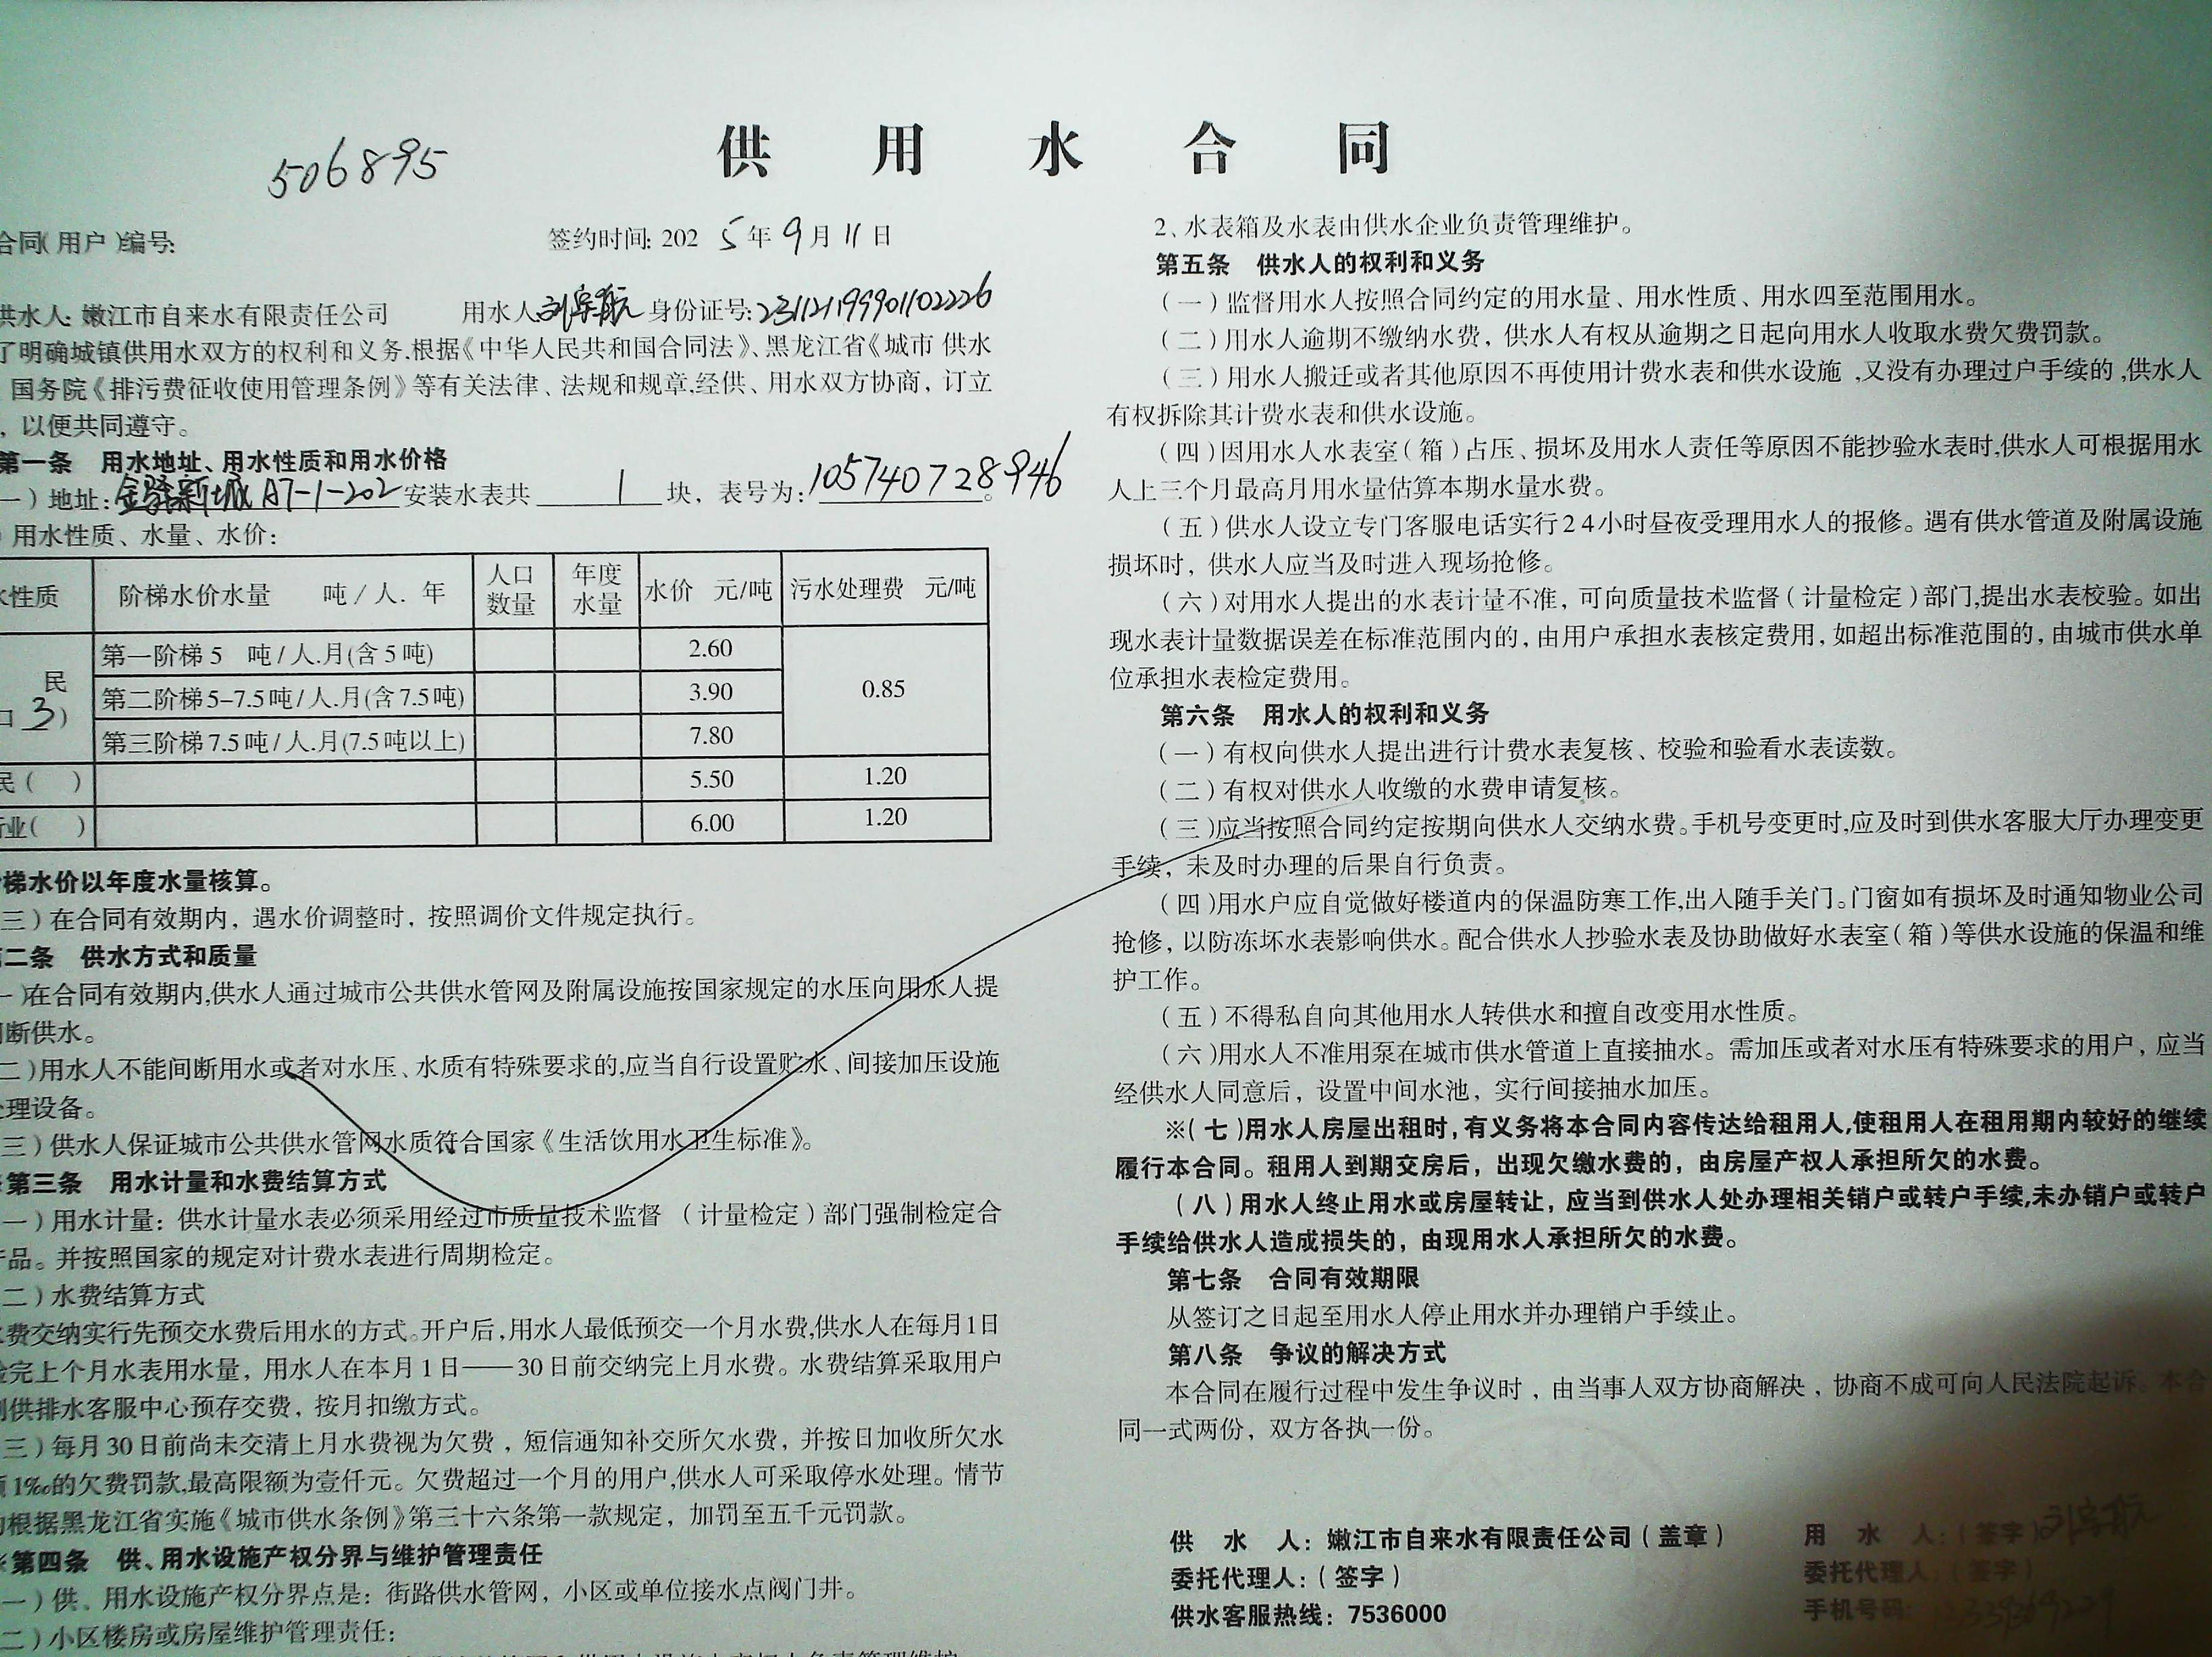 供用水合同
506895
合同(用户)编号:
签约时间: 2025年9月11日
供水人: 嫩江市自来水有限责任公司 用水人: 刘宇航 身份证号: 231121199901102226
了明确城镇供用水双方的权利和义务.根据《中华人民共和国合同法》、黑龙江省《城市 供水
国务院《排污费征收使用管理条例》等有关法律、法规和规章,经供、用水双方协商，订立
，以便共同遵守。
第一条 用水地址、用水性质和用水价格
一）地址: 金驿新城 A7-1-202 安装水表共 1 块，表号为: 105740728946。
用水性质、水量、水价:
水性质 阶梯水价水量 吨/人. 年 人口数量 年度水量 水价 元/吨 污水处理费 元/吨
民
口 3）
第一阶梯 5 吨/人.月(含5吨) 2.60 0.85
第二阶梯 5-7.5吨/人.月(含7.5吨) 3.90
第三阶梯 7.5吨/人.月(7.5吨以上) 7.80
民( ) 5.50 1.20
业( ) 6.00 1.20
梯水价以年度水量核算。
三）在合同有效期内，遇水价调整时，按照调价文件规定执行。
二条 供水方式和质量
一)在合同有效期内,供水人通过城市公共供水管网及附属设施按国家规定的水压向用水人提
间断供水。
二)用水人不能间断用水或者对水压、水质有特殊要求的,应当自行设置贮水、间接加压设施
处理设备。
三）供水人保证城市公共供水管网水质符合国家《生活饮用水卫生标准》。
第三条 用水计量和水费结算方式
一）用水计量：供水计量水表必须采用经过市质量技术监督 （计量检定）部门强制检定合
产品。并按照国家的规定对计费水表进行周期检定。
二）水费结算方式
水费交纳实行先预交水费后用水的方式。开户后,用水人最低预交一个月水费,供水人在每月1日
完上个月水表用水量，用水人在本月1日——30日前交纳完上月水费。水费结算采取用户
到供排水客服中心预存交费，按月扣缴方式。
三）每月30日前尚未交清上月水费视为欠费，短信通知补交所欠水费，并按日加收所欠水
1‰的欠费罚款,最高限额为壹仟元。欠费超过一个月的用户,供水人可采取停水处理。情节
根据黑龙江省实施《城市供水条例》第三十六条第一款规定，加罚至五千元罚款。
第四条 供、用水设施产权分界与维护管理责任
一）供、用水设施产权分界点是：街路供水管网，小区或单位接水点阀门井。
二）小区楼房或房屋维护管理责任：
2、水表箱及水表由供水企业负责管理维护。
第五条 供水人的权利和义务
（一）监督用水人按照合同约定的用水量、用水性质、用水四至范围用水。
（二）用水人逾期不缴纳水费，供水人有权从逾期之日起向用水人收取水费欠费罚款。
（三）用水人搬迁或者其他原因不再使用计费水表和供水设施 ,又没有办理过户手续的 ,供水人
有权拆除其计费水表和供水设施。
（四）因用水人水表室（箱）占压、损坏及用水人责任等原因不能抄验水表时,供水人可根据用水
人上三个月最高月用水量估算本期水量水费。
（五）供水人设立专门客服电话实行24小时昼夜受理用水人的报修。遇有供水管道及附属设施
损坏时，供水人应当及时进入现场抢修。
（六）对用水人提出的水表计量不准，可向质量技术监督（计量检定）部门,提出水表校验。如出
现水表计量数据误差在标准范围内的，由用户承担水表核定费用，如超出标准范围的，由城市供水单
位承担水表检定费用。
第六条 用水人的权利和义务
（一）有权向供水人提出进行计费水表复核、校验和验看水表读数。
（二）有权对供水人收缴的水费申请复核。
（三)应当按照合同约定按期向供水人交纳水费。手机号变更时,应及时到供水客服大厅办理变更
手续，未及时办理的后果自行负责。
（四)用水户应自觉做好楼道内的保温防寒工作,出入随手关门。门窗如有损坏及时通知物业公司
抢修，以防冻坏水表影响供水。配合供水人抄验水表及协助做好水表室（箱）等供水设施的保温和维
护工作。
（五）不得私自向其他用水人转供水和擅自改变用水性质。
（六)用水人不准用泵在城市供水管道上直接抽水。需加压或者对水压有特殊要求的用户，应当
经供水人同意后，设置中间水池，实行间接抽水加压。
※(七)用水人房屋出租时,有义务将本合同内容传达给租用人,使租用人在租用期内较好的继续
履行本合同。租用人到期交房后，出现欠缴水费的，由房屋产权人承担所欠的水费。
（八）用水人终止用水或房屋转让，应当到供水人处办理相关销户或转户手续,未办销户或转户
手续给供水人造成损失的，由现用水人承担所欠的水费。
第七条 合同有效期限
从签订之日起至用水人停止用水并办理销户手续止。
第八条 争议的解决方式
本合同在履行过程中发生争议时，由当事人双方协商解决，协商不成可向人民法院起诉。本合
同一式两份，双方各执一份。
供 水 人：嫩江市自来水有限责任公司（盖章） 用 水 人：（签字）刘宇航
委托代理人：（签字） 委托代理人（签字）
供水客服热线：7536000 手机号码：